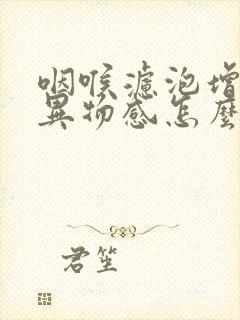 咽喉濾泡增
異物感怎麼
君笙